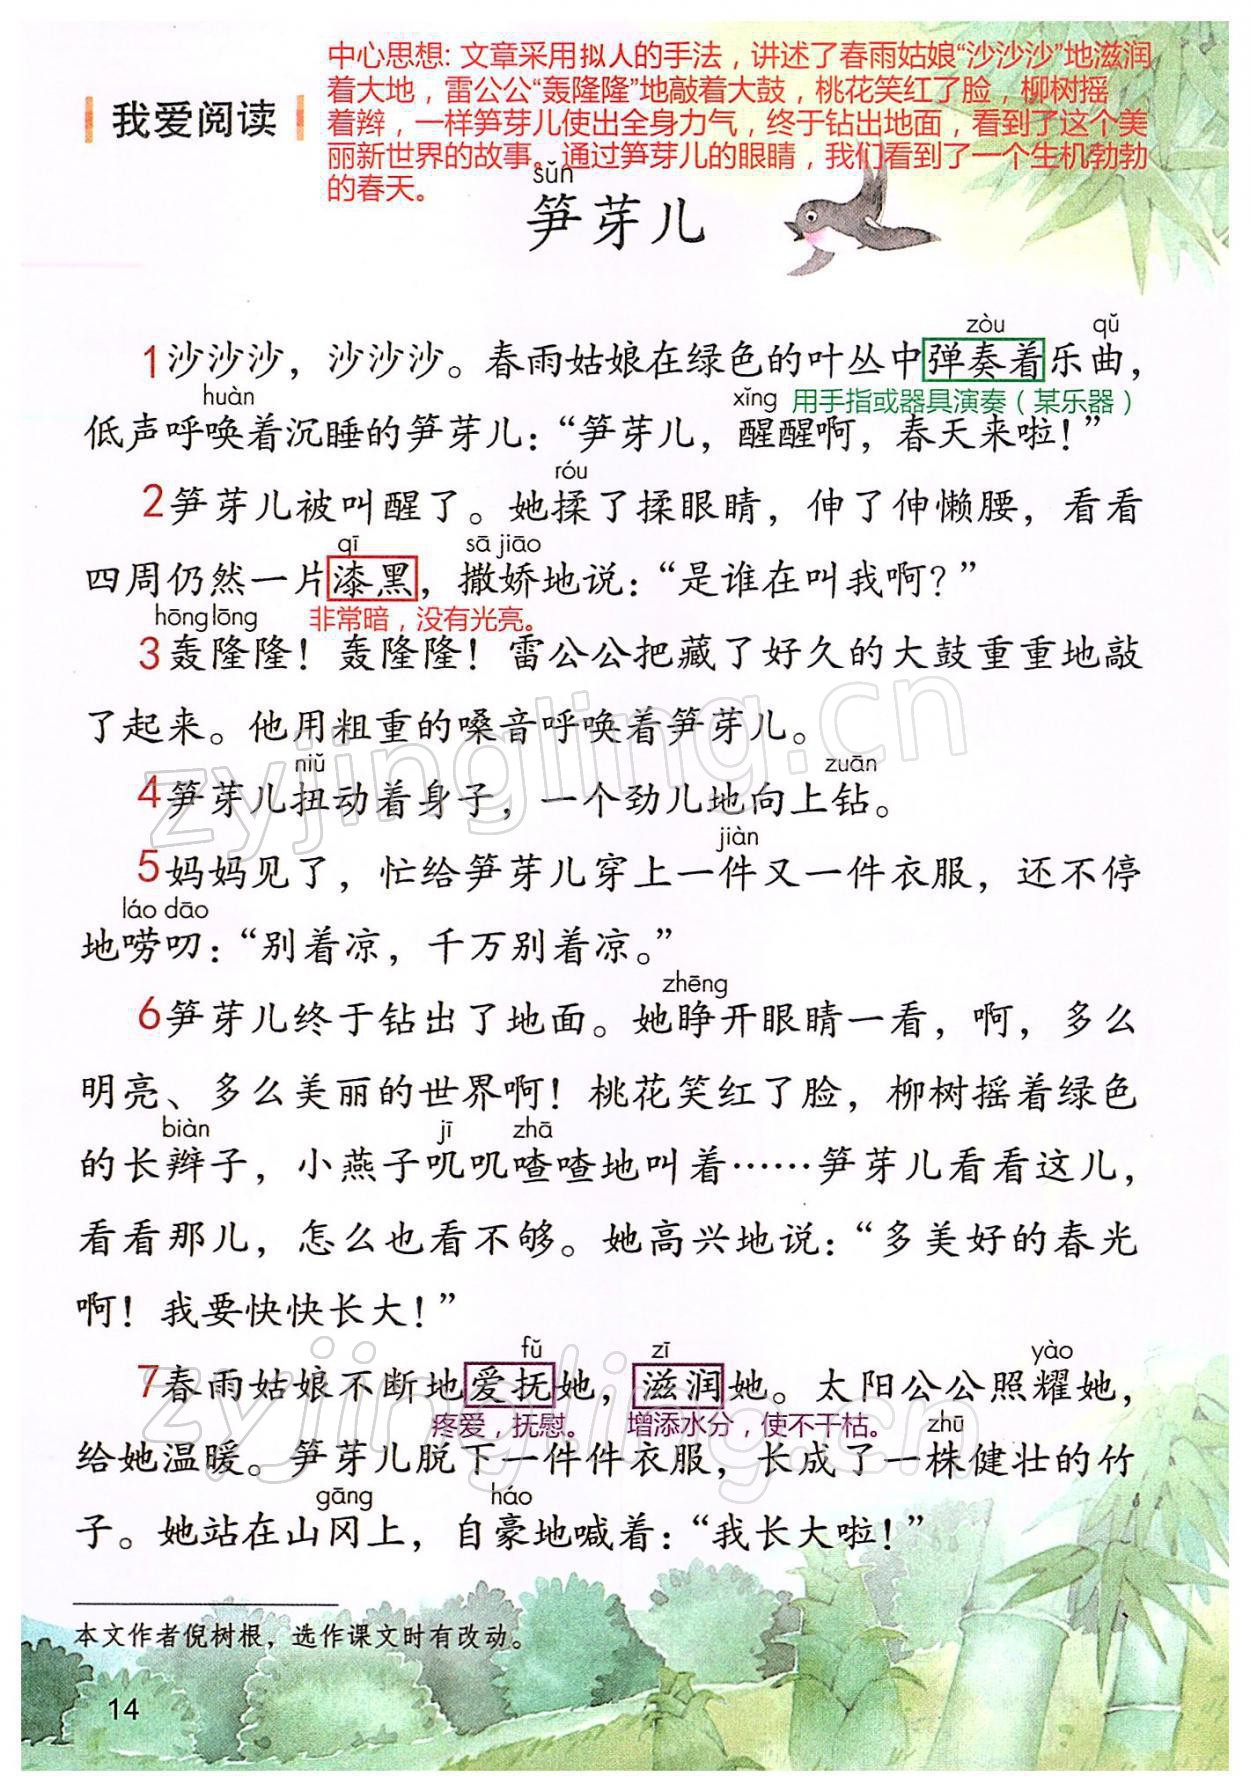 中心思想: 文章采用拟人的手法，讲述了春雨姑娘“沙沙沙”地滋润
着大地，雷公公“轰隆隆”地敲着大鼓，桃花笑红了脸，柳树摇
着辫，一样笋芽儿使出全身力气，终于钻出地面，看到了这个美
丽新世界的故事。通过笋芽儿的眼睛，我们看到了一个生机勃勃
的春天。
我爱阅读
sǔn
笋芽儿
zòu qǔ
1沙沙沙，沙沙沙。春雨姑娘在绿色的叶丛中弹奏着乐曲，
huàn xǐng 用手指或器具演奏（某乐器）
低声呼唤着沉睡的笋芽儿：“笋芽儿，醒醒啊，春天来啦！”
róu
2笋芽儿被叫醒了。她揉了揉眼睛，伸了伸懒腰，看看
qī sā jiāo
四周仍然一片漆黑，撒娇地说：“是谁在叫我啊？”
hōng lōng 非常暗，没有光亮。
3轰隆隆！轰隆隆！雷公公把藏了好久的大鼓重重地敲
了起来。他用粗重的嗓音呼唤着笋芽儿。
niǔ zuān
4笋芽儿扭动着身子，一个劲儿地向上钻。
jiàn
5妈妈见了，忙给笋芽儿穿上一件又一件衣服，还不停
láo dāo
地唠叨：“别着凉，千万别着凉。”
zhēng
6笋芽儿终于钻出了地面。她睁开眼睛一看，啊，多么
明亮、多么美丽的世界啊！桃花笑红了脸，柳树摇着绿色
biàn jī zhā
的长辫子，小燕子叽叽喳喳地叫着……笋芽儿看看这儿，
看看那儿，怎么也看不够。她高兴地说：“多美好的春光
啊！我要快快长大！”
fǔ zī yào
7春雨姑娘不断地爱抚她，滋润她。太阳公公照耀她，
疼爱，抚慰。 增添水分，使不干枯。 zhū
给她温暖。笋芽儿脱下一件件衣服，长成了一株健壮的竹
gāng háo
子。她站在山冈上，自豪地喊着：“我长大啦！”
本文作者倪树根，选作课文时有改动。
14
zyjingling.cn
zyjingling.cn